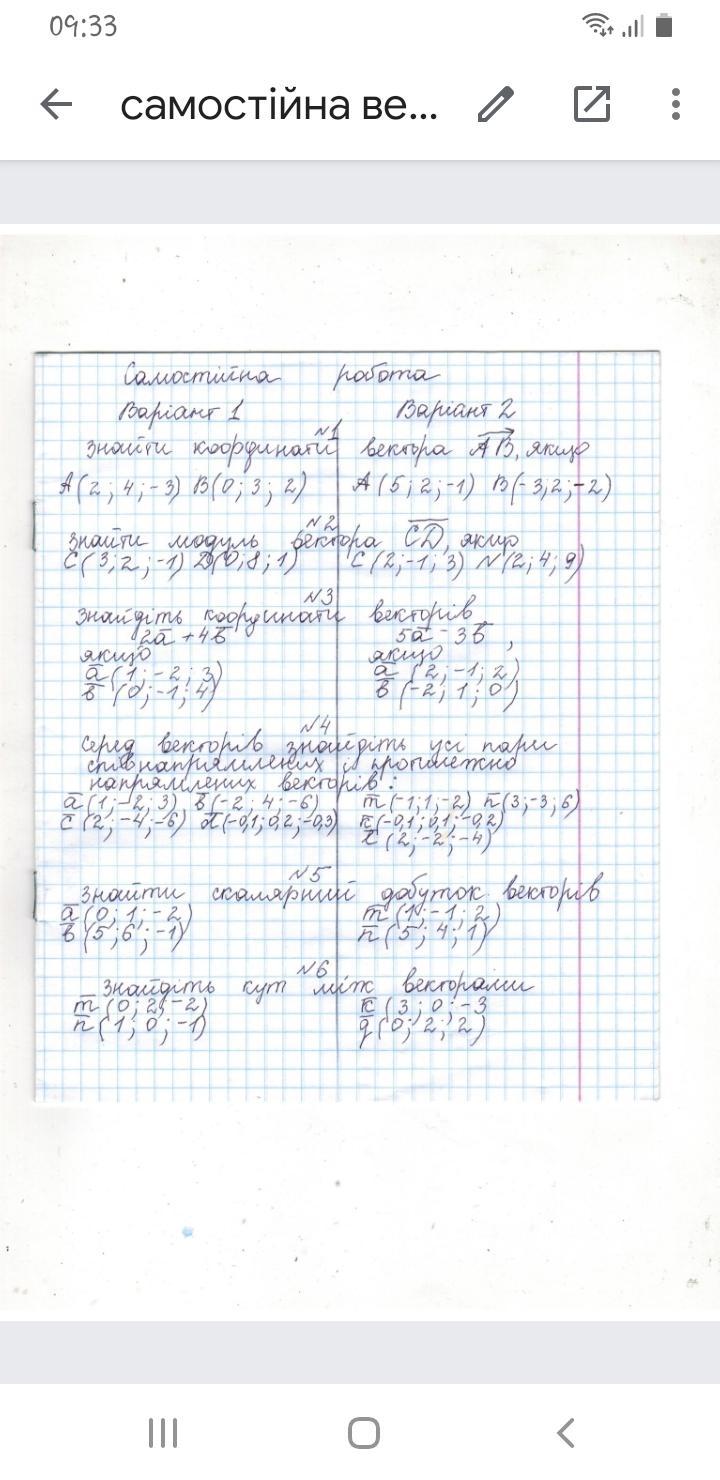 09:33
самостійна ве...
Самостійна робота
Варіант 1 Варіант 2
№1
Знайти координати вектора AB, якщо
A(2; 4; -3) B(0; 3; 2) A(5; 2; -1) B(-3; 2; -2)
№2
Знайти модуль вектора CD, якщо
C(3; 2; -1) D(0; 8; 1) C(2; -1; 3) N(2; 4; 9)
№3
Знайдіть координати векторів
2a̅ + 4b̅ 5a̅ - 3b̅,
якщо якщо
a̅(1; -2; 3) a̅(2; -1; 2)
b̅(0; -1; 4) b̅(-2; 1; 0)
№4
Серед векторів знайдіть усі пари
співнапрямлених і протилежно
напрямлених векторів:
a̅(1; -2; 3) b̅(-2; 4; -6) m̅(-1; 1; -2) n̅(3; -3; 6)
c̅(2; -4; -6) d̅(-0,1; 0,2; -0,3) k̅(-0,1; 0,1; -0,2)
(2; -2; -4)
№5
Знайти скалярний добуток векторів
a̅(0; 1; -2) m̅(1; -1; 2)
b̅(5; 6; -1) n̅(5; 4; 1)
№6
Знайдіть кут між векторами
m̅(0; 2; -2) k̅(3; 0; -3
n̅(1; 0; -1) q̅(0; 2; 2)